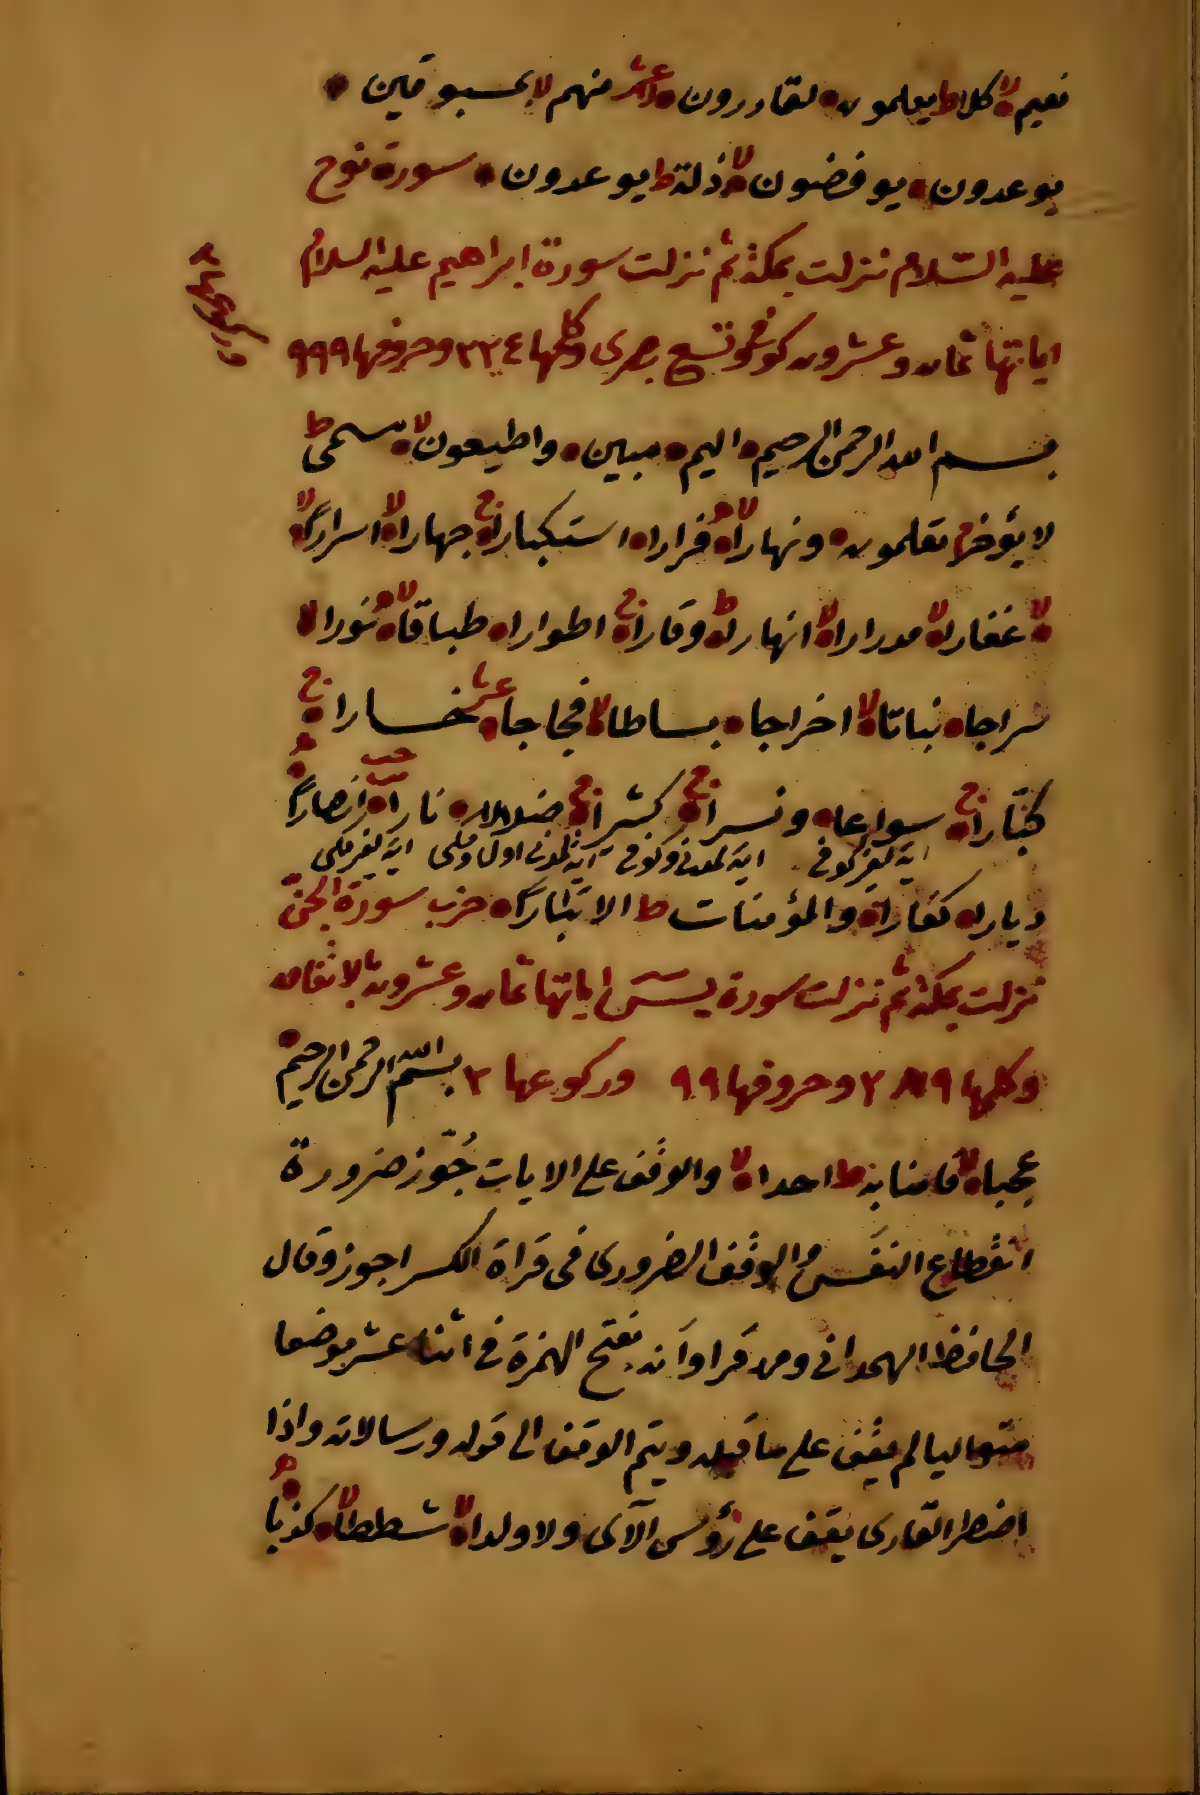 نعيم لا كلا ط يعلمون لقادرون عشر منهم لا بمسبوقين
يوعدون يوفضون لا ذلة ط يوعدون سورة نوح
عليه السلام نزلت بمكة ثم نزلت سورة ابراهيم عليه السلام
اياتها ثمان وعشرون كوفي وتسع بصرى وكلمها ٢٢٤ وحروفها ٩٩٩
وركوعها ٢
بسم الله الرحمن الرحيم اليم مبين واطيعون لا مسمى ط
لا يؤخر م تعلمون ونهارا لا فرارا استكبارا ج جهارا لا اسرارا لا
غفارا لا مدرارا لا انهارا ط وقارا ج اطوارا طباقا لا نورا لا
سراجا نباتا لا اخراجا بساطا لا فجاجا عشر خسارا ج
كبّارا ج سواعا ونسرا ج كثيرا ج ضلالا نارا انصارا
اية لغير كوفى اية لمدنى وكوفى اية لمدنى اول ومكى اية لغير مكى
ديارا كفارا والمؤمنات ط الا تبارا حزب سورة الجنّ
نزلت بمكة ثم نزلت سورة يس اياتها ثمان وعشرون بالاتفاق
وكلمها ٢٨٩ وحروفها ٩٩ وركوعها ٢ بسم الله الرحمن الرحيم
عجبا لا فامنا به ط احدا لا والوقف على الايات جُوّز ضرورة
انقطاع النَفَس والوقف الضرورى فى قراة الكسر اجوز وقال
الحافظ الهمدانى ومن قرا وَاَنه بفتح الهمزة فى اثنا عشر موضعا
متواليا لم يقف على ما قبله ويتم الوقف الى قوله ورسالاته واذا
اضطر القارى يقف على رؤس الآى ولا ولدا لا شططا لا كذبا